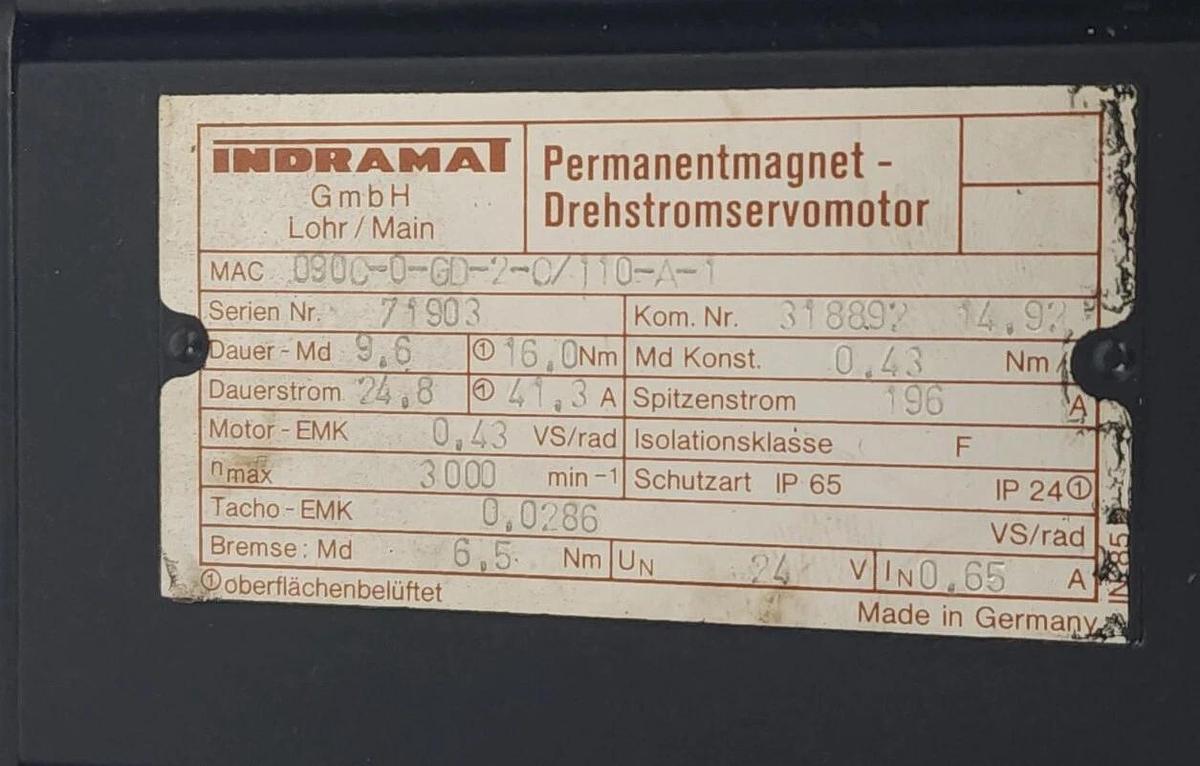 INDRAMAT
GmbH
Lohr / Main
Permanentmagnet -
Drehstromservomotor
MAC 090C-0-GD-2-C/110-A-1
Serien Nr. 71903
Kom. Nr. 318892 14.92
Dauer - Md 9,6 ① 16,0 Nm
Md Konst. 0,43 Nm
Dauerstrom 24,8 ① 41,3 A
Spitzenstrom 196 A
Motor - EMK 0,43 VS/rad
Isolationsklasse F
nmax 3000 min -1
Schutzart IP 65 IP 24 ①
Tacho - EMK 0,0286 VS/rad
Bremse: Md 6,5 Nm UN 24 V IN 0,65 A
① oberflächenbelüftet
Made in Germany